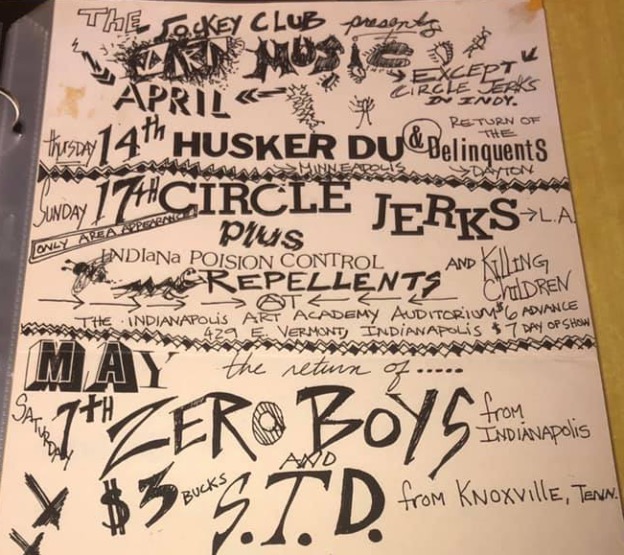 THE JOCKEY CLUB presents
MUSIC
EXCEPT
CIRCLE JERKS
IN INDY.
APRIL
THURSDAY 14th HUSKER DU & RETURN OF THE Delinquents
MINNEAPOLIS DAYTON
SUNDAY 17TH CIRCLE JERKS L.A.
ONLY AREA APPEARANCE
plus
INDIaNa POISION CONTROL
REPELLENTS AND KILLING CHILDREN
AT
THE INDIANAPOLIS ART ACADEMY AUDITORIUM $6 ADVANCE
429 E. VERMONT, INDIANAPOLIS $7 DAY OF SHOW
MAY the return of .....
SATURDAY 7TH ZERO BOYS from INDIANAPOLIS
AND
$3 BUCKS S.T.D. from KNOXVILLE, TENN.